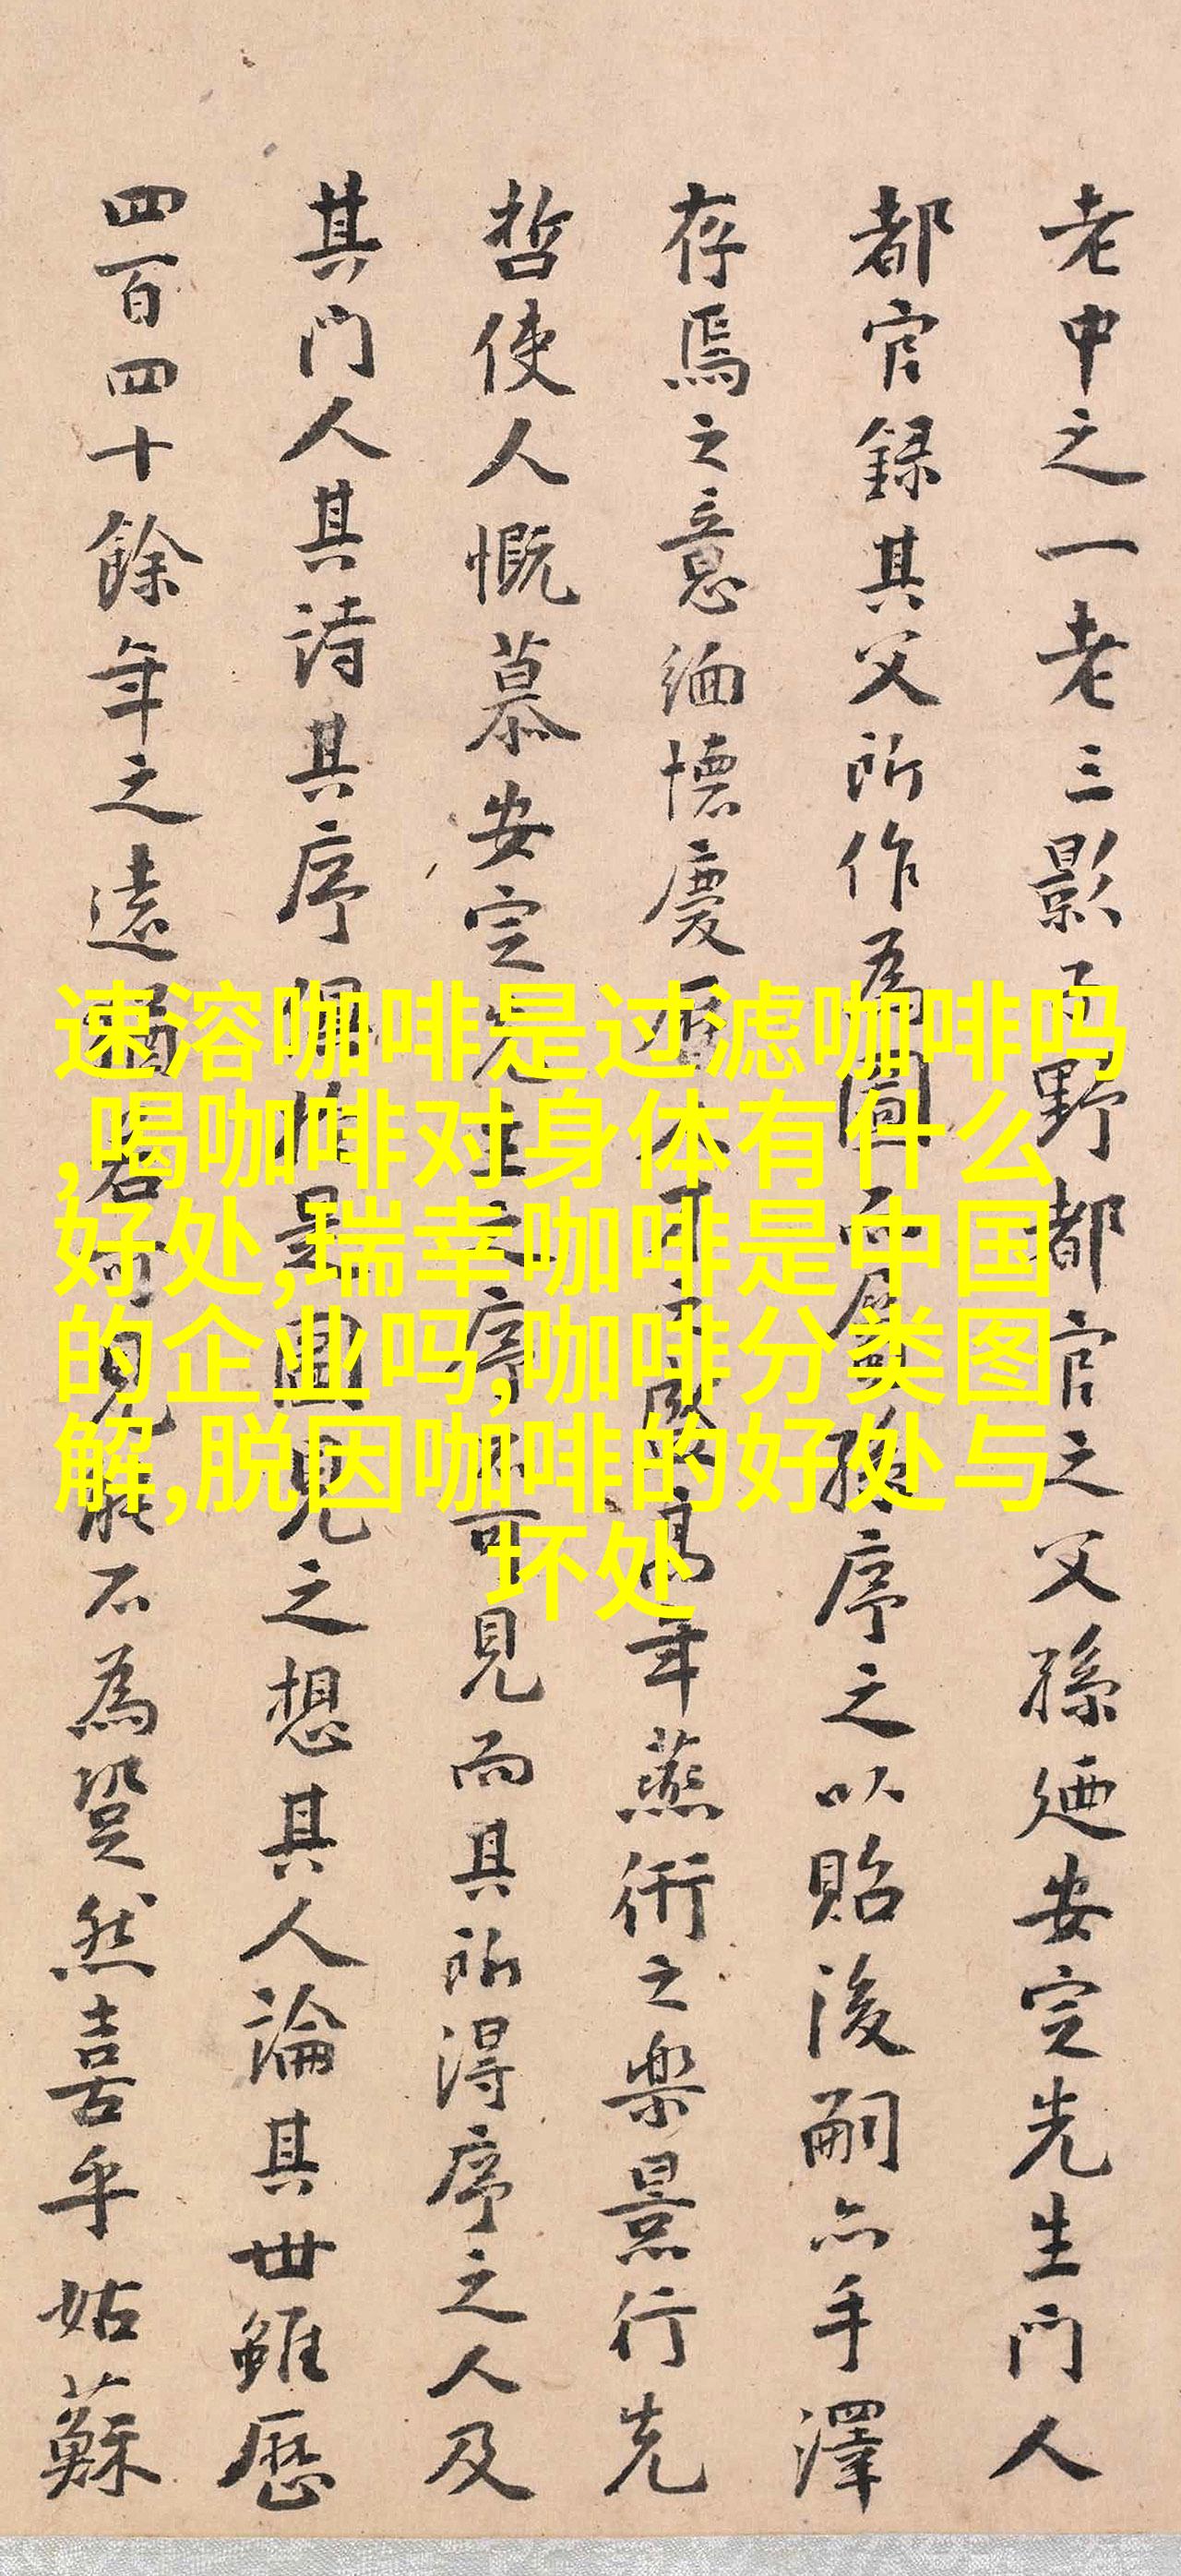 老中之一老三影子野都官之父孫廼安定先生門人
都官録其父所作為圖而屬孫序之以貽後嗣亦手澤
存焉之意緬懷慶
高年燕衎之樂景行先
哲使人慨慕安定先生之序可見而其所得序之人及
其門人其詩其序惟是圖見之想其人論其世雖歷
四百四十餘年之遠猶若可見能不為跫然喜乎姑蘇
速溶咖啡是过滤咖啡吗
,喝咖啡对身体有什么
好处,瑞幸咖啡是中国
的企业吗,咖啡分类图
解,脱因咖啡的好处与
坏处